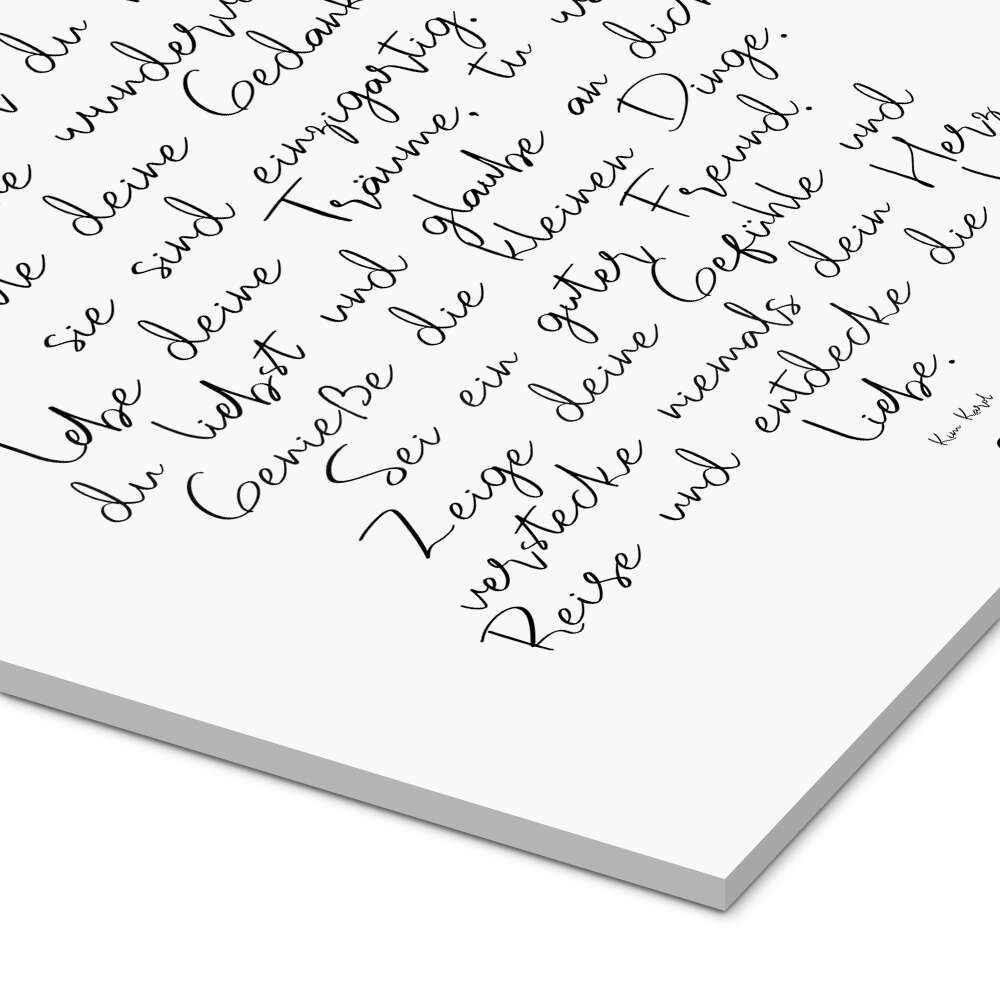 du
wunderv
deine Gedank
sie sind einzigartig.
Lebe deine Träume, tu w
du liebst und glaube an dich
Genieße die kleinen Dinge.
Sei ein guter Freund.
Zeige deine Gefühle und
verstecke niemals dein Herz
Reise und entdecke die
Liebe.
Kim Karol